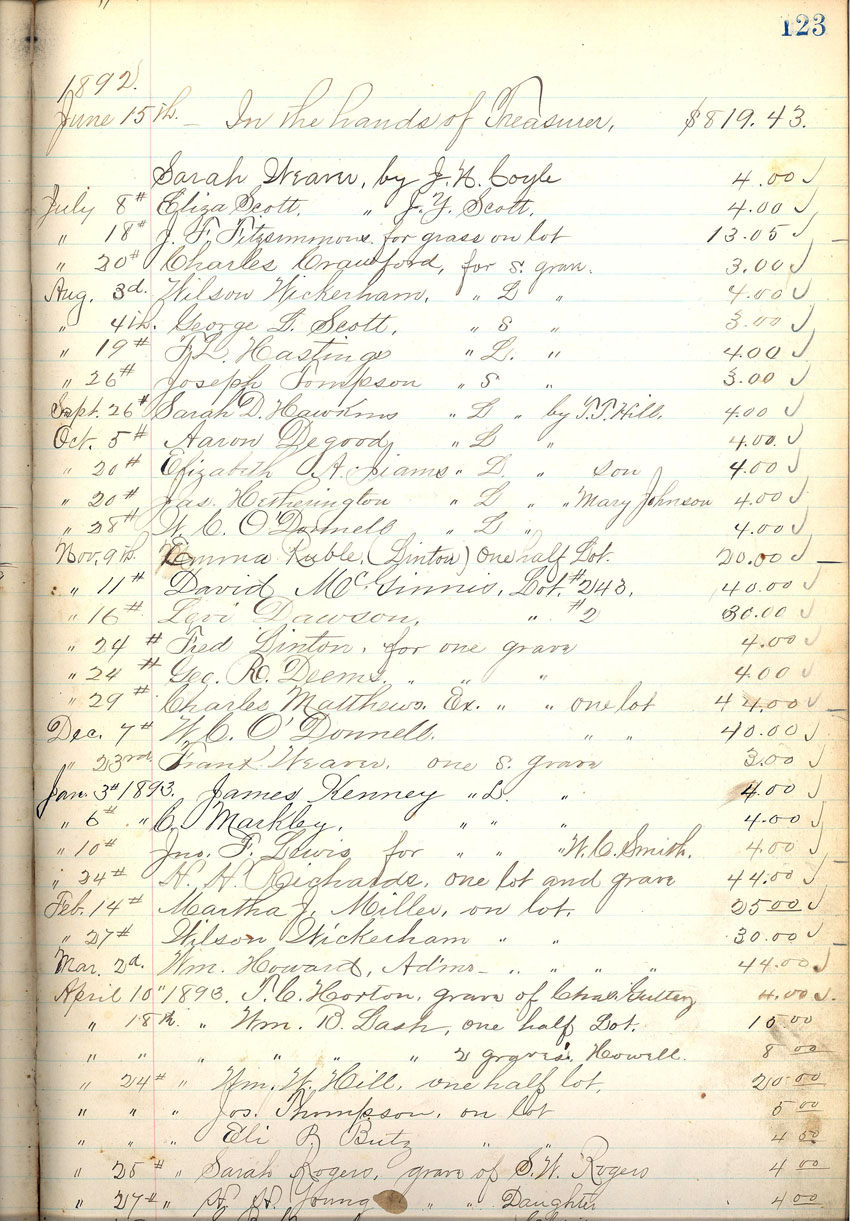 123
1892.
June 15th. — In the hands of Treasurer, $819.43.
Sarah Weaver, by J. N. Coyle 4.00 ✓
July 8th Eliza Scott, " J. Y. Scott, 4.00 ✓
" 18th J. F. Fitzsimmons for grass on lot 13.05 ✓
" 20th Charles Crawford, for S. grave. 3.00 ✓
Aug. 3d. Wilson Wickerham, " L " 4.00 ✓
" 4th. George L. Scott, " S " 3.00 ✓
" 19th F. L. Hastings " L. " 4.00 ✓
" 26th Joseph Tompson " S " 3.00 ✓
Sept. 26th Sarah D. Hawkins " L " by T. T. Hill. 4.00 ✓
Oct. 5th Aaron Degood, " L " 4.00. ✓
" 20th Elizabeth A. Iiams " L " son 4.00 ✓
" 20th Jas. Hetherington " L " " Mary Johnson 4.00 ✓
" 28th W. C. O'Donnell " L " 4.00 ✓
Nov. 9th. Emma Ruble, (Linton) one half Lot. 20.00 ✓
" 11th David McGinnis, Lot, #243, 40.00 ✓
" 16th. Levi Dawson, " #2 30.00 ✓
" 24th Fred Linton, for one grave 4.00 ✓
" 24th Geo. R. Deems. " " " 4.00 ✓
" 29th Charles Matthews. Ex. " " one lot 44.00 ✓
Dec. 7th W. C. O'Donnell. " " 40.00 ✓
" 23rd Frank Weaver. one S. grave 3.00 ✓
Jan. 3d 1893. James Kenney " L. " 4.00 ✓
" 6th " C. Markley, " " " 4.00 ✓
" 10th Jno. F. Lewis for " " " W. C. Smith. 4.00 ✓
" 24th H. H. Richards, one lot and grave 44.00 ✓
Feb. 14th Martha J. Miller, on lot, 25 00 ✓
" 27th Wilson Wickerham " " 30.00 ✓
Mar. 2d. Wm. Howard, Adms- " " " " 44.00 ✓
April 10" 1893. T. C. Horton, grave of Chas. 4.00 ✓.
" 18th. " Wm. B. Lash, one half Lot. 10 00
" " " " " " 2 graves. Howell. 8 00
" 24th " Wm. W. Hill, one half lot, 20 00
" " " Jos. Thompson, on lot 5 00
" " " Eli R Butz " " 4 00
" 25th " Sarah Rogers, grave of S. W. Rogers 4 00
" 27th " H. H. Young " " Daughter 4 00